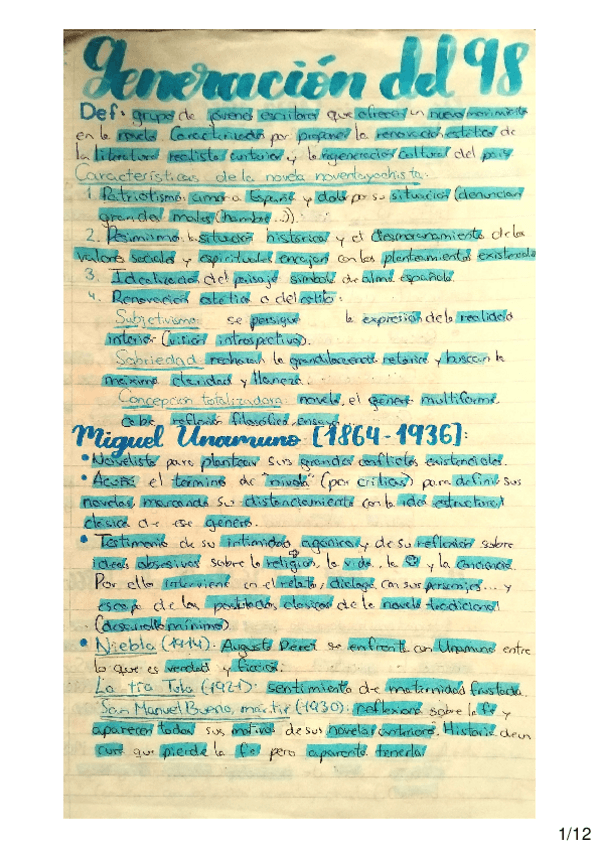 Generación del 98
Def: grupo de jóvenes escritores que ofrecen un nuevo movimiento
en la novela. Caracterizado por proponer la renovación estética de
la literatura realista anterior y la regeneración cultural del país.
Características de la novela noventayochista:
1. Patriotismo: amor a España y dolor por su situación (denuncian
grandes males (hambre...)).
2. Pesimismo: la situación histórica y el desmoronamiento de los
valores sociales y espirituales encajan con los planteamientos existenciales
3. Idealización del paisaje símbolo de alma española.
4. Renovación estética o del estilo:
Subjetivismo se persigue la expresión de la realidad
interior (visión introspectiva).
Sobriedad rechazan la grandilocuencia retórica y buscan la
máxima claridad y llaneza.
Concepción totalizadora: novela, el género multiforme
cabe reflexión filosófica, ensayo
Miguel Unamuno [1864-1936]:
• Novelista para plantear sus grandes conflictos existenciales.
• Acuñó el término de "nivola" (por críticas) para definir sus
novelas, marcando su distanciamiento con la idea estructural
clásica de ese género.
• Testimonio de su intimidad agónica y de su reflexión sobre
ideas obsesivas sobre la religión, la vida, la y la conciencia.
Por ello interviene en el relato, dialoga con sus personajes... y
escapa de los postulados clásicos de la novela tradicional
(desarrollo mínimo)
• Niebla (1914): Augusto Pérez se enfrenta con Unamuno entre
lo que es verdad y ficción.
La tía Tula (1921): sentimiento de maternidad frustada.
San Manuel Bueno, mártir (1930): reflexiona sobre la fe y
aparecen todos sus motivos de sus novelas anteriores. Historia de un
cura que pierde la fe pero aparenta tenerla
1/12